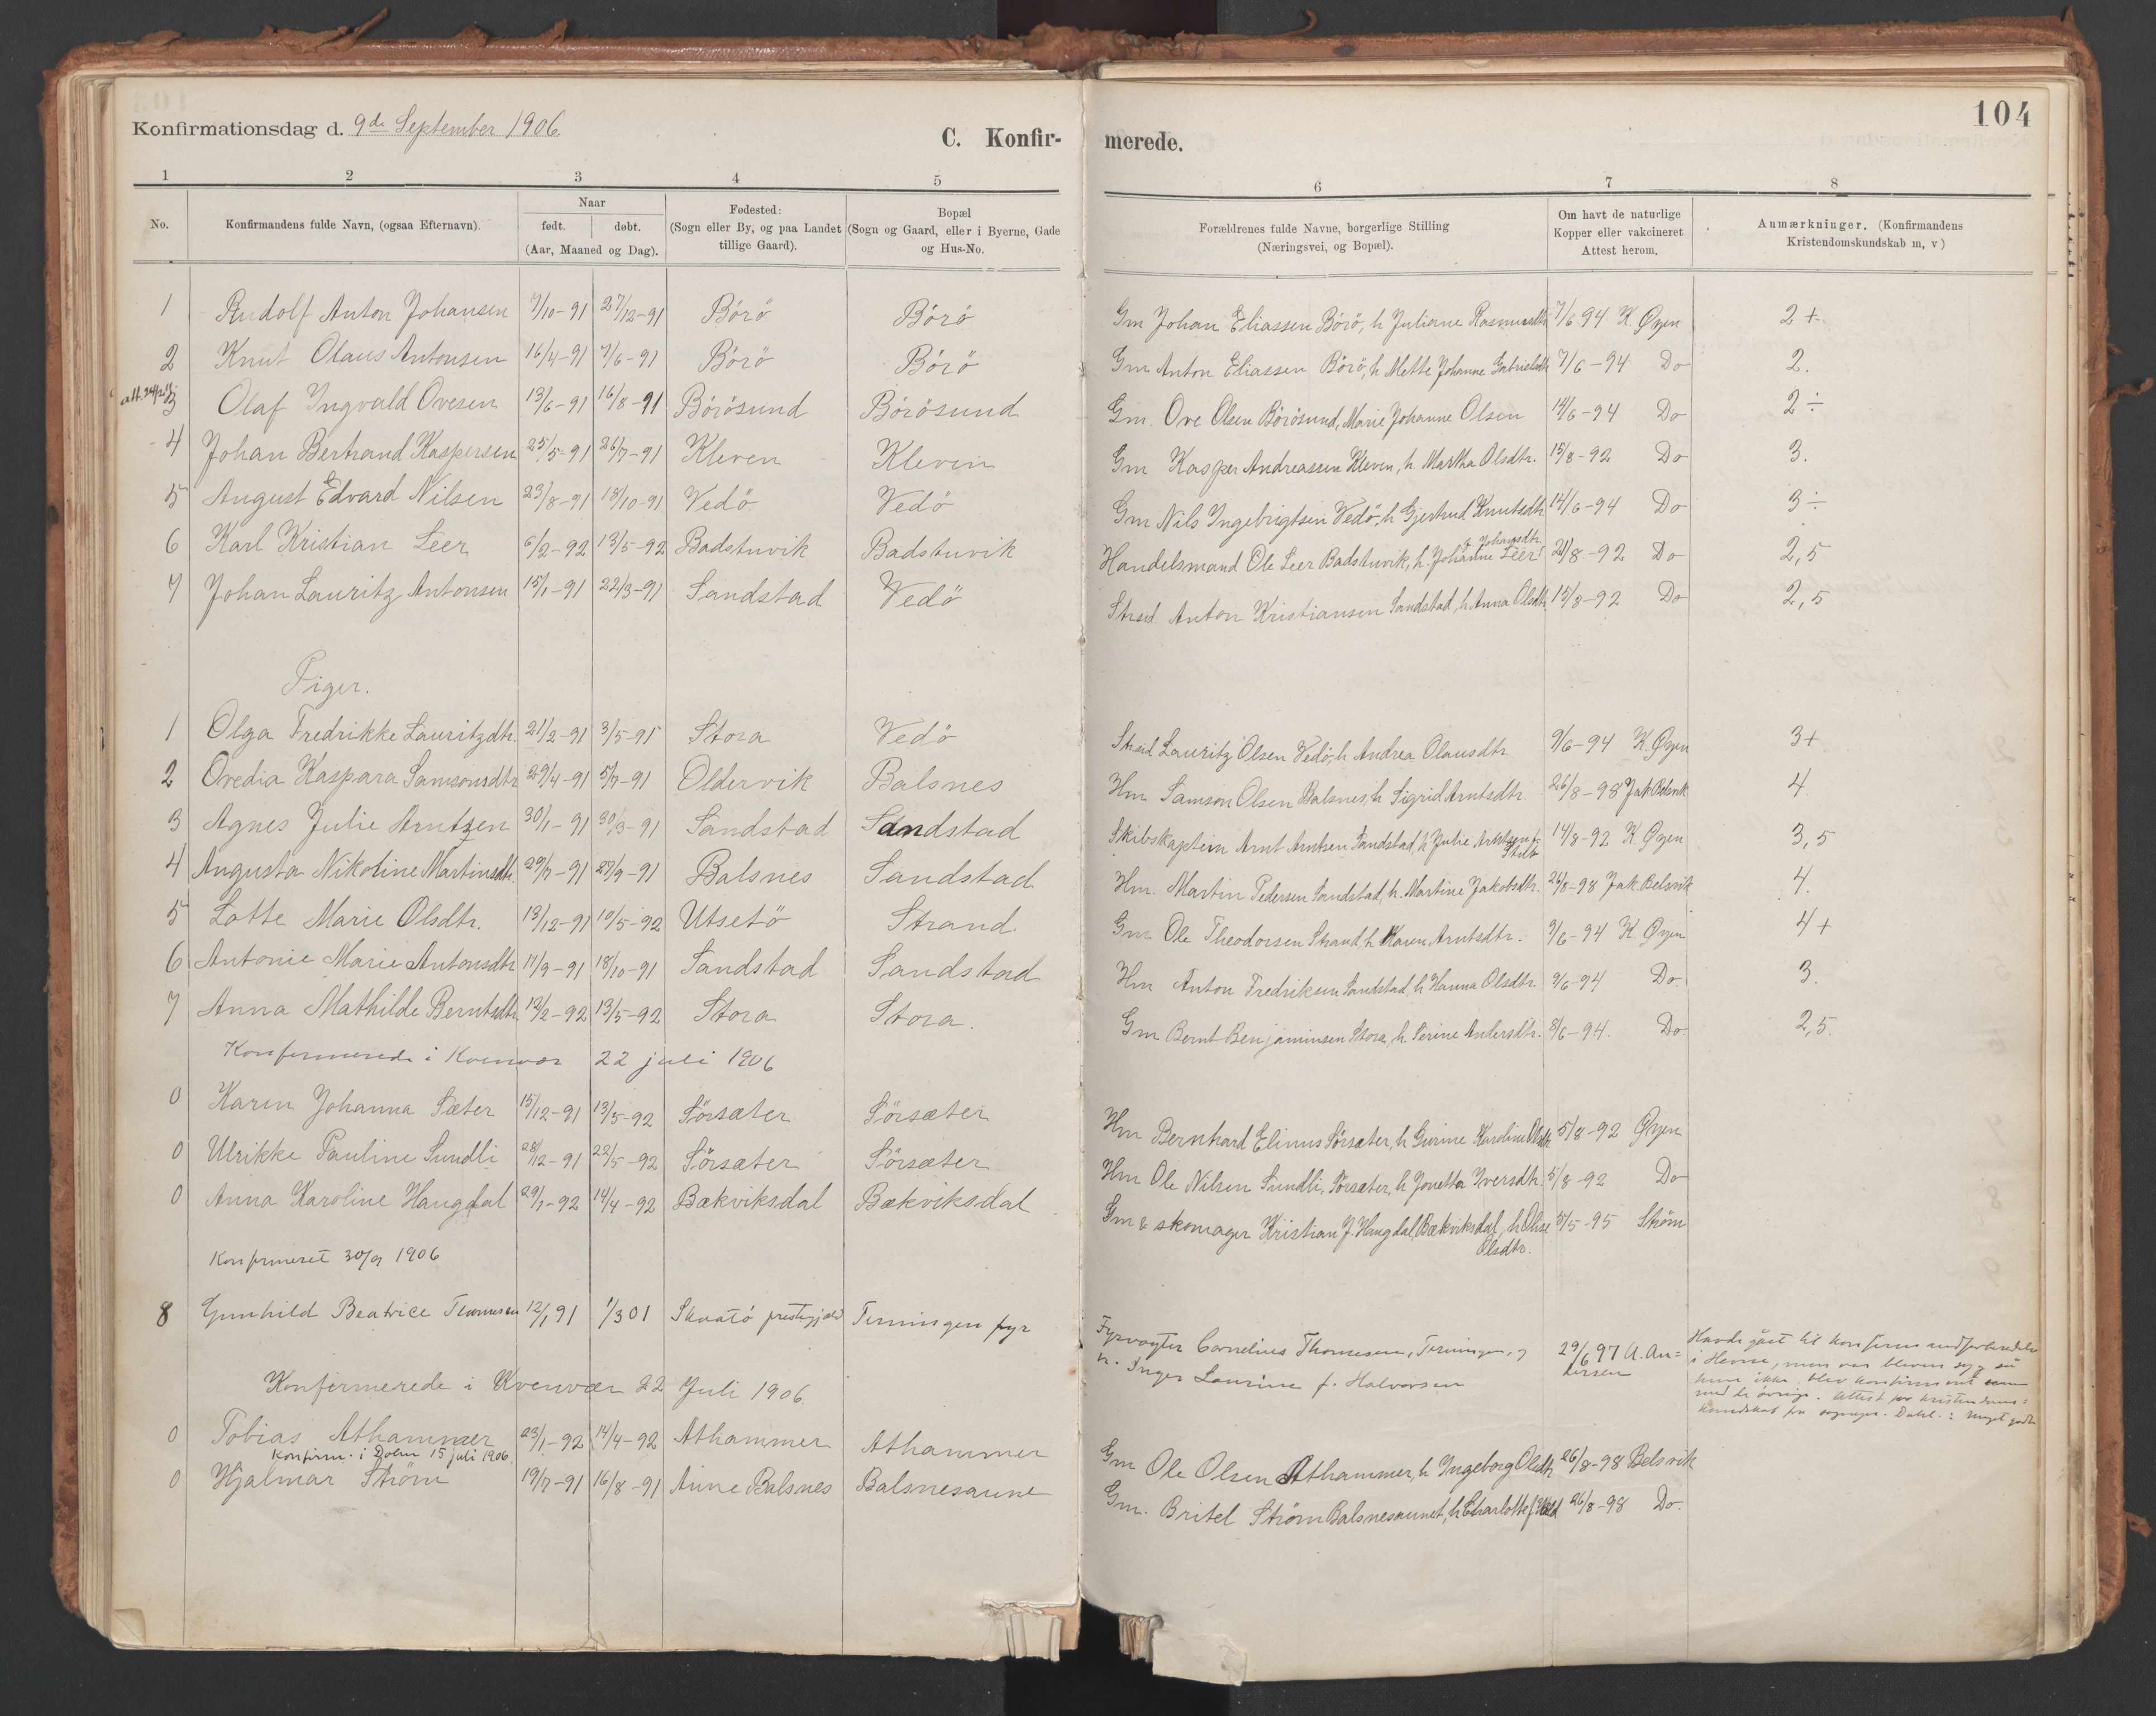 104
Konfirmationsdag d. 9de September 1906.
C. Konfir- merede.
1 2 3 4 5 6 7 8
No.
Konfirmandens fulde Navn, (ogsaa Efternavn).
Naar
født. døbt.
(Aar, Maaned og Dag).
Fødested:
(Sogn eller By, og paa Landet
tillige Gaard).
Bopæl
(Sogn og Gaard, eller i Byerne, Gade
og Hus-No.
Forældrenes fulde Navne, borgerlige Stilling
(Næringsvei, og Bopæl).
Om havt de naturlige
Kopper eller vakcineret
Attest herom.
Anmærkninger. (Konfirmandens
Kristendomskundskab m, v)
1 Rudolf Anton Johansen 7/10-91 27/12-91 Börö Börö Gm Johan Eliassen Börö, h Juliane Rasmusdtr 7/6 94 K. Øyen 2+
2 Knut Olaus Antonsen 16/4-91 7/6-91 Börö Börö Gm Anton Eliassen Börö, h Mette Johanne Gabrielsdtr 7/6-94 Do 2.
3 Olaf Ingvald Ovesen 13/6-91 16/8-91 Börösund Börösund Gm. Ove Olsen Börösund, Marie Johanne Olsen 14/6-94 Do 2÷
4 Johan Bertrand Kaspersen 25/5-91 26/7-91 Kleven Kleven Gm Kasper Andreassen Kleven, h Martha Olsdtr. 15/8-92 Do 3.
5 August Edvard Nilsen 23/8-91 18/10-91 Vedö Vedö Gm Nils Ingebrigtsen Vedö, h Gjertrud Knutsdtr 14/6-94 Do 3÷
6 Karl Kristian Leer 6/2-92 13/5-92 Badstuvik Badstuvik Handelsmand Ole Leer Badstuvik, h. Johanne Leer f. Johansdtr. 21/8-92 Do 2,5
7 Johan Lauritz Antonsen 15/1-91 22/3-91 Sandstad Vedö Strsd. Anton Kristiansen Sandstad, h Anna Olsdtr. 15/8-92 Do 2,5
Piger.
1 Olga Fredrikke Lauritzdtr. 21/2-91 3/5-91 Stora Vedö Strsd Lauritz Olsen Vedö, h Andrea Olausdtr. 9/6-94 K. Øyen 3+
2 Ovedia Kaspara Samsonsdtr 29/4-91 5/7-91 Oldervik Balsnes Hm Samson Olsen Balsnes, h Sigrid Arntsdtr 26/8-98 Jak Belsvik 4.
3 Agnes Julie Arntzen 30/1-91 30/3-91 Sandstad Sandstad Skibskaptein Arnt Arntsen Sandstad, h Julie Arntsen f. 14/8-92 K Øyen 3,5
4 Augusta Nikoline Martinsdtr. 29/7-91 27/9-91 Balsnes Sandstad Hm. Martin Pedersen Sandstad, h. Martine Jakobsdtr. 26/8-98 Jak. Belsvik 4.
5 Lotte Marie Olsdtr. 13/12-91 10/5-92 Utsetö Strand. Gm Ole Theodorsen Strand, h Karen Arntsdtr. 9/6-94 K. Øyen 4+
6 Antonie Marie Antonsdtr 17/9-91 18/10-91 Sandstad Sandstad Hm Anton Fredriksen Sandstad, h Hanna Olsdtr. 9/6-94 Do. 3.
7 Anna Mathilde Berntsdtr 12/2-92 13/5-92 Stora Stora. Gm Bernt Benjaminsen Stora, h. Serine Andersdtr. 8/6-94. Do. 2,5.
Konfirmerede i Kvenvær 22 juli 1906
0 Karen Johanna Sæter 15/12-91 13/5-92 Sörsæter Sörsæter Hm Bernhard Elinus Sörsæter, h Gurine Karoline Olsdtr 5/8-92 Øyen
0 Ulrikke Pauline Sundli 28/12-91 22/5-92 Sörsæter Sörsæter Hm Ole Nilsen Sundli, Sörsæter, h Jonetta Iversdtr. 5/8-92 Do
0 Anna Karoline Haugdal 29/1-92 14/4-92 Bækviksdal Bækviksdal Gm & skomager Kristian J. Haugdal, Bækviksdal, h Olise 5/5-95 Ström
Olsdtr.
Konfirmeret 30/9 1906
8 Gunhild Beatrice Thomesen 12/1 91 1/3 01 Skaatö prestegjæld Terningen fyr Fyrvogter Cornelius Thomesen, Terningen, 29/6 97 A. An=
dersen
h. Inger Laurine f. Halvorsen
Havde gået til konfirmandforberedelse
i Hevne, men var bleven syg så
hun ikke blev konfirmeret
med de øvrige. Attest for kristendoms=
kundskab fra sogneprest Dahl: meget godt
Konfirmerede i Kvenvær 22 Juli 1906
0 Tobias Athammer 23/1-92 14/4-92 Athammer Athammer Gm Ole Olsen Athammer, h Ingeborg Olsdtr 26/8-98 Belsvik
Konfirm. i Dolm 15 juli 1906.
0 Hjalmar Ström 19/7-91 16/8-91 Aune Balsnes Balsnesaune Gm. Britel Ström Balsnesaunet, h Charlotte f. 26/8-98 Do.